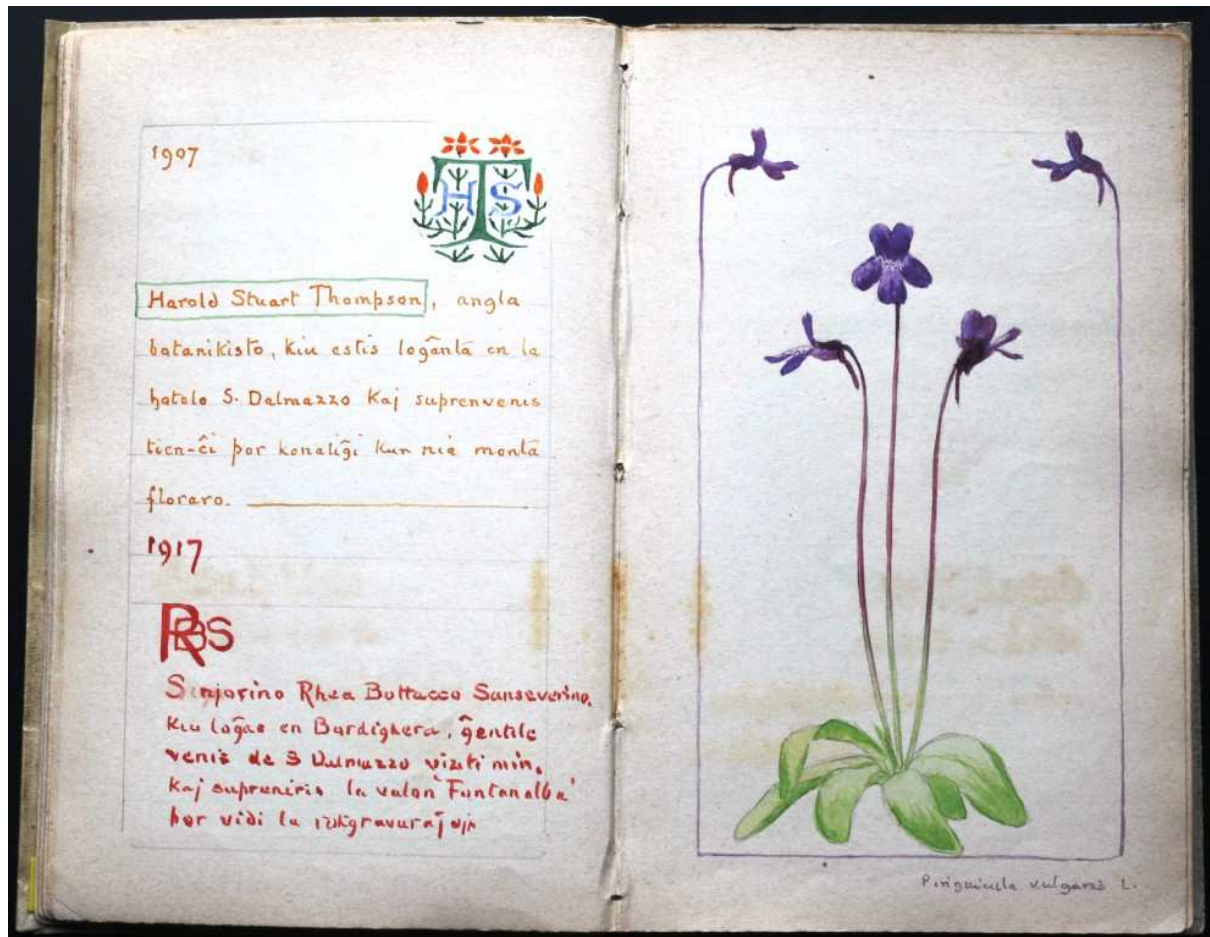 1907
HTS
Harold Stuart Thompson, angla
botanikisto, kiu estis loĝanta en la
hotelo S. Dalmazzo Kaj suprenvenis
tien-ĉi por konatiĝi kun nia monta
floraro.
1917
RBS
Sinjorino Rhea Buttacco Sanseverino,
Kiu loĝas en Bordighera, ĝentile
venis de S Dalmazzo viziti min,
Kaj supreniris la valon Fontanalba
por vidi la
Pinguicula vulgaris L.